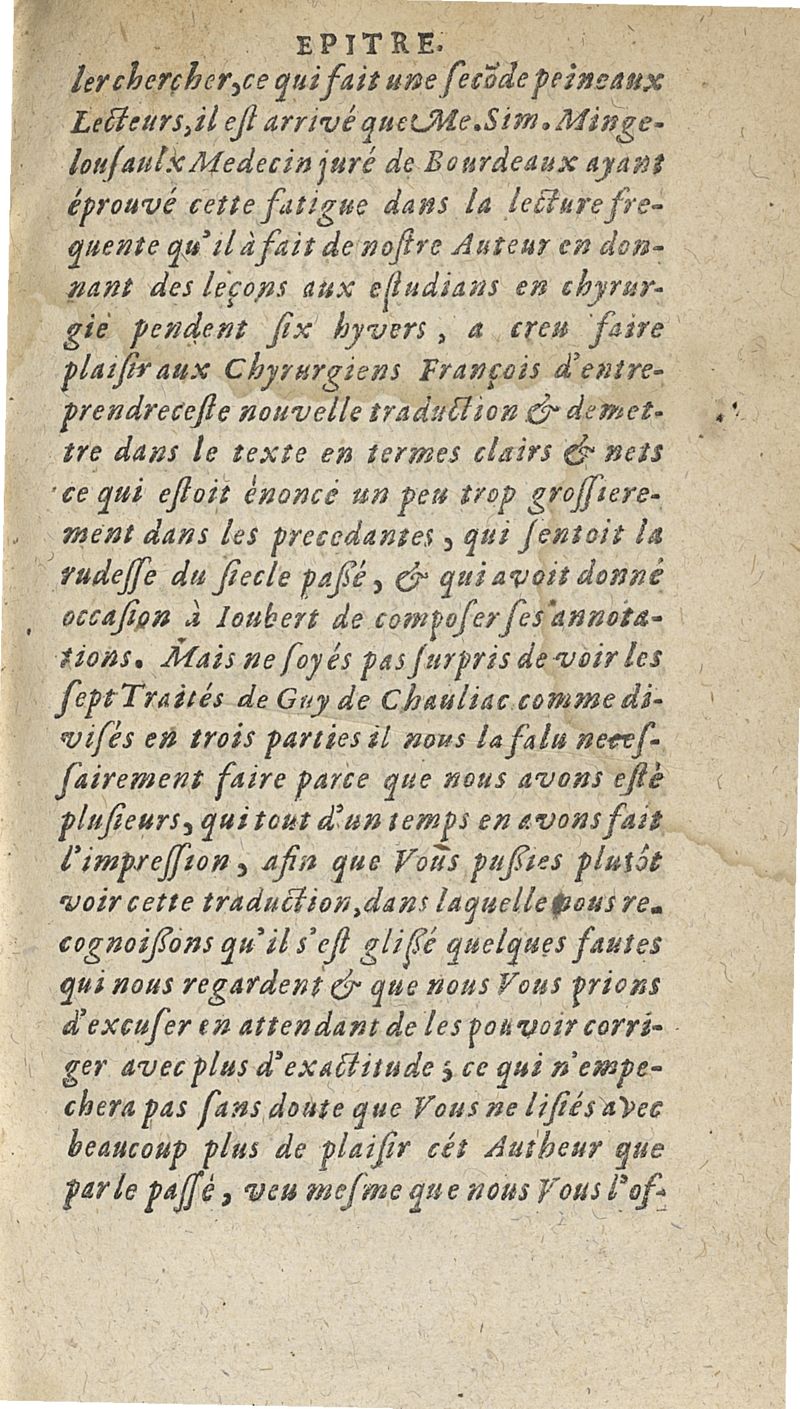 EPITRE.
ler chercher, ce qui fait une ſecõde peine aux
Lecteurs, il eſt arrivé que Me. Sim. Minge-
louſaulx Medecin juré de Bourdeaux ayant
éprouvé cette fatigue dans la lecture fre-
quente qu'il à fait de noſtre Auteur en don-
nant des leçons aux eſtudians en chyrur-
gie pendent ſix hyvers, a creu faire
plaiſir aux Chyrurgiens François d'entre-
prendre ceſte nouvelle traduction & de met-
tre dans le texte en termes clairs & nets
ce qui eſtoit ènoncé un peu trop groſſiere-
ment dans les precedantes, qui ſentoit la
rudeſſe du ſiecle paßé, & qui avoit donné
occaſion à Ioubert de compoſer ſes annota-
tions. Mais ne ſoyés pas ſurpris de voir les
ſept Traités de Guy de Chauliac comme di-
viſés en trois parties il nous la falu neceſ-
ſairement faire parce que nous avons eſtè
pluſieurs, qui tout d'un temps en avons fait
l'impreſſion, afin que Vous pußies plutôt
voir cette traduction, dans laquelle nous re-
cognoißons qu'il s'eſt glißé quelques fautes
qui nous regardent & que nous Vous prions
d'excuſer en attendant de les pouvoir corri-
ger avec plus d'exactitude; ce qui n'empe-
chera pas ſans doute que Vous ne liſiés avec
beaucoup plus de plaiſir cét Autheur que
par le paſſè, veu meſme que nous Vous l'of-